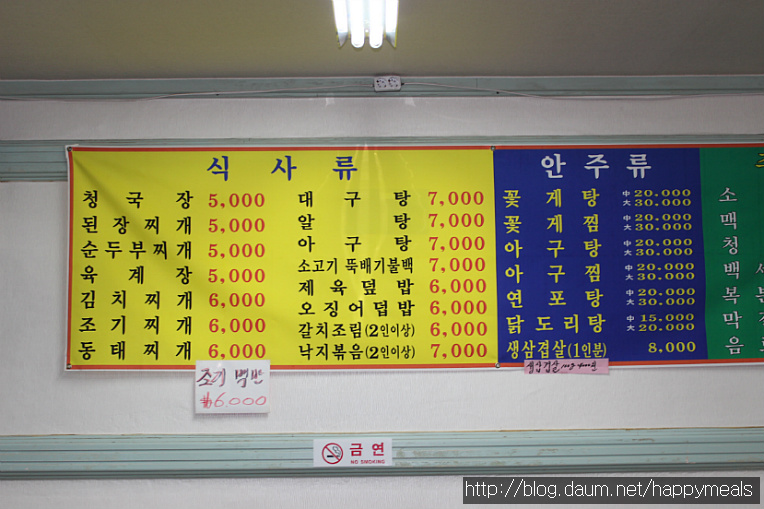 식 사 류
청 국 장 5,000
된 장 찌 개 5,000
순 두 부 찌 개 5,000
육 계 장 5,000
김 치 찌 개 6,000
조 기 찌 개 6,000
동 태 찌 개 6,000
대 구 탕 7,000
알 탕 7,000
아 구 탕 7,000
소고기 뚝배기불백 7,000
제 육 덮 밥 6,000
오 징 어 덮 밥 6,000
갈치조림(2인이상) 6,000
낙지볶음(2인이상) 7,000
안 주 류
꽃 게 탕 中 20.000 大 30.000
꽃 게 찜 中 20.000 大 30.000
아 구 탕 中 20.000 大 30.000
아 구 찜 中 20.000 大 30.000
연 포 탕 中 20.000 大 30.000
닭 도 리 탕 中 15.000 大 20.000
생삼겹살(1인분) 8,000
소
맥
청
백
복
막
음
조기 백반
₩6.000
생삼겹살
금 연
NO SMOKING
http://blog.daum.net/happymeals